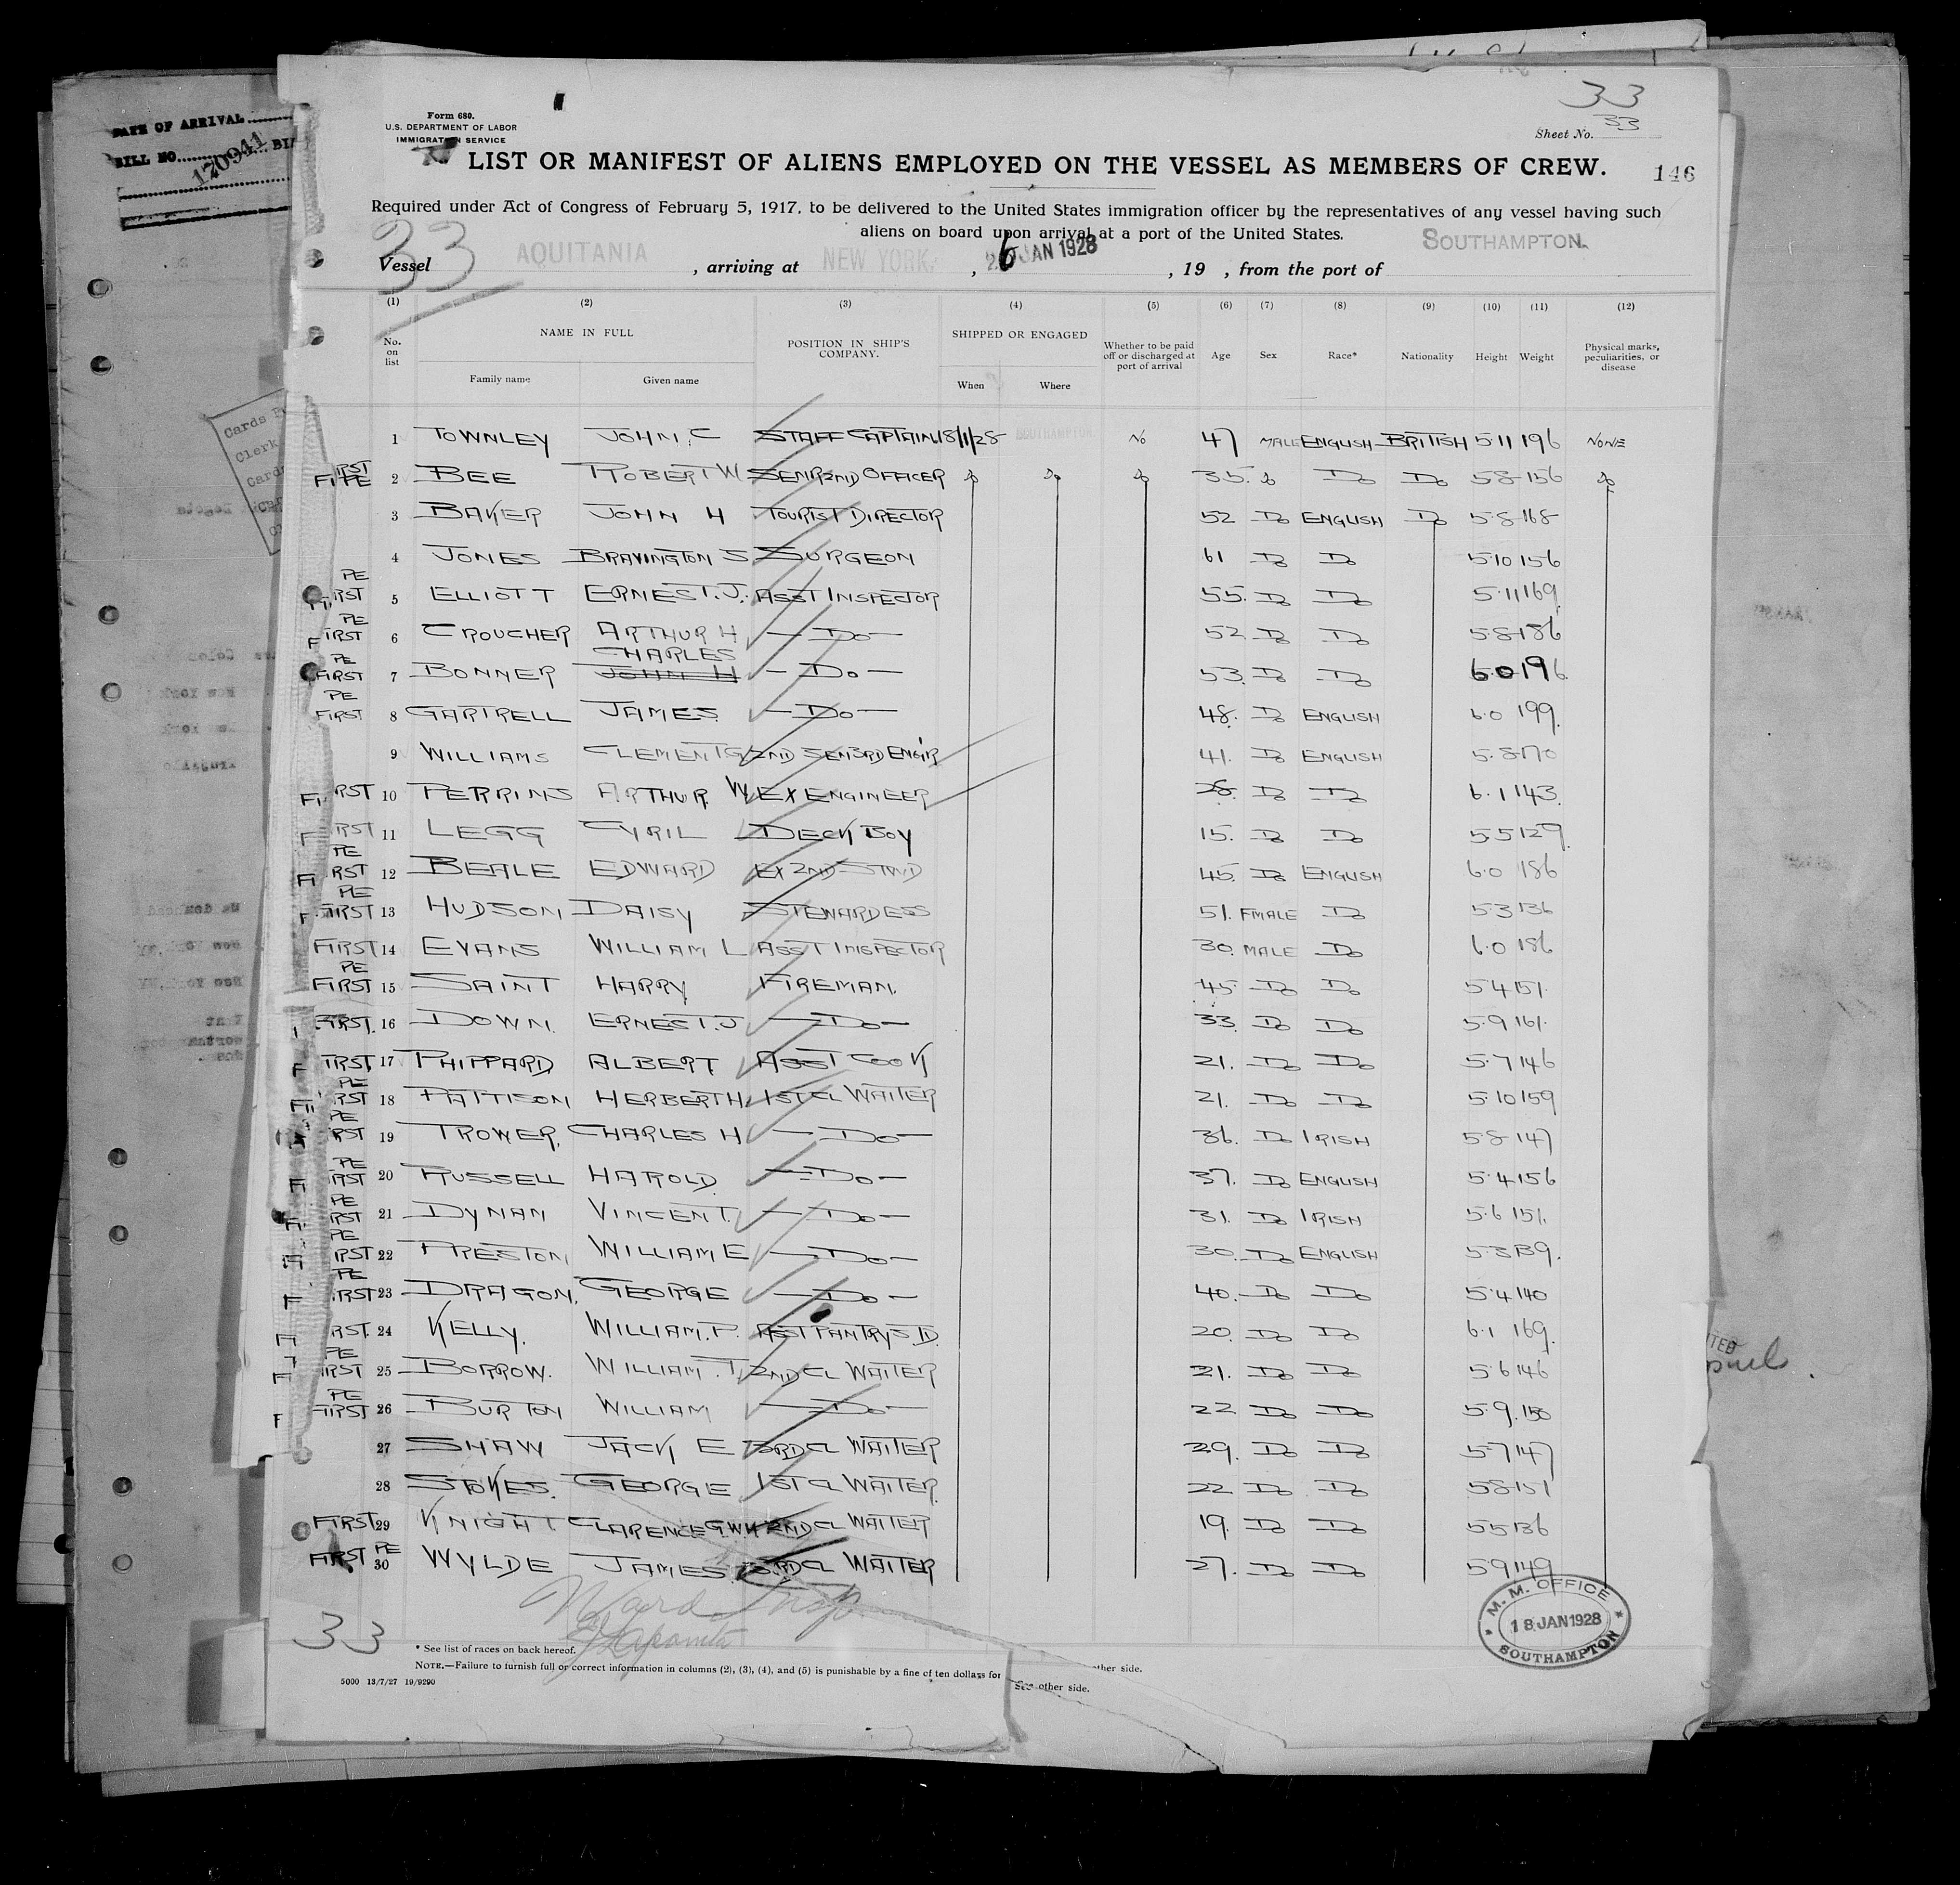 33
Form 680.
U.S. DEPARTMENT OF LABOR
IMMIGRATION SERVICE
Sheet No. 33
LIST OR MANIFEST OF ALIENS EMPLOYED ON THE VESSEL AS MEMBERS OF CREW.
146
Required under Act of Congress of February 5, 1917, to be delivered to the United States immigration officer by the representatives of any vessel having such
aliens on board upon arrival at a port of the United States.
33
Vessel AQUITANIA , arriving at NEW YORK , 26 JAN 1928 , 19 , from the port of SOUTHAMPTON.
(1) (2) (3) (4) (5) (6) (7) (8) (9) (10) (11) (12)
No. on list NAME IN FULL POSITION IN SHIP'S COMPANY. SHIPPED OR ENGAGED Whether to be paid off or discharged at port of arrival Age Sex Race* Nationality Height Weight Physical marks, peculiarities, or disease
Family name Given name When Where
1 TOWNLEY JOHN. C STAFF CAPTAIN 18/1/28 SOUTHAMPTON No 47 MALE ENGLISH BRITISH 5·11 196 NONE
FIRST PE 2 BEE ROBERT W SENR 2ND OFFICER Do Do Do 35. Do Do Do 5·8 156 Do
3 BAKER JOHN H TOURIST DIRECTOR 52 Do ENGLISH Do 5·8 168
4 JONES BRAVINGTON S SURGEON 61 Do Do 5·10 156
PE FIRST 5 ELLIOTT ERNEST. J. ASST INSPECTOR 55. Do Do 5·11 169
PE FIRST 6 CROUCHER ARTHUR H — Do — 52 Do Do 5·8 186
PE FIRST 7 BONNER CHARLES JOHN H — Do — 53. Do Do 6·0 196
PE FIRST 8 GARTRELL JAMES — Do — 48. Do ENGLISH 6·0 199.
9 WILLIAMS CLEMENT G 2ND SEN 3RD ENGR 41. Do ENGLISH 5·8 170
FIRST 10 PERRINS ARTHUR W EX ENGINEER 28. Do Do 6·1 143.
FIRST 11 LEGG CYRIL DECK BOY 15. Do Do 5·5 129
PE FIRST 12 BEALE EDWARD EX 2ND STWD 45. Do ENGLISH 6·0 186
PE FIRST 13 HUDSON DAISY STEWARDESS 51. FMALE Do 5·3 136
FIRST 14 EVANS WILLIAM L ASST INSPECTOR 30. MALE Do 6·0 186
PE FIRST 15 SAINT HARRY FIREMAN. 45 Do Do 5·4 151.
FIRST. 16 DOWN. ERNEST. J — Do — 33. Do Do 5·9 161.
FIRST. 17 PHIPPARD ALBERT ASST COOK 21. Do Do 5·7 146
PE FIRST 18 PATTISON HERBERT H. 1ST CL WAITER 21. Do Do 5·10 159
PE FIRST 19 TROWER, CHARLES H — Do — 36. Do IRISH 5·8 147
PE FIRST 20 RUSSELL HAROLD — Do — 37. Do ENGLISH 5·4 156
PE FIRST 21 DYNAN VINCENT. — Do — 31. Do IRISH 5·6 151.
PE FIRST 22 PRESTON WILLIAM E — Do — 30. Do ENGLISH 5·3 139.
PE FIRST 23 DRAGON, GEORGE — Do — 40. Do Do 5·4 140
FIRST. 24 KELLY. WILLIAM. P. ASST PANTRY SD. 20. Do Do 6·1 169.
PE FIRST 25 BORROW. WILLIAM. T. 2ND CL WAITER 21. Do Do 5·6 146
PE FIRST 26 BURTON WILLIAM — Do — 22 Do Do 5·9. 150
27 SHAW JACK E 3RD CL WAITER 29. Do Do 5·7 147
28 STOKES. GEORGE 1ST CL WAITER. 22 Do Do 5·8 151
FIRST 29 KNIGHT CLARENCE G.W.H 2ND CL WAITER 19. Do Do 5·5 136
FIRST PE 30 WYLDE JAMES. 3RD CL WAITER 27. Do Do 5·9 149
33
M. M. OFFICE
18 JAN 1928
SOUTHAMPTON
* See list of races on back hereof.
NOTE.—Failure to furnish full or correct information in columns (2), (3), (4), and (5) is punishable by a fine of ten dollars for
other side.
See other side.
5000 13/7/27 19/9290
DATE OF ARRIVAL
BILL NO. 120941
Clerk